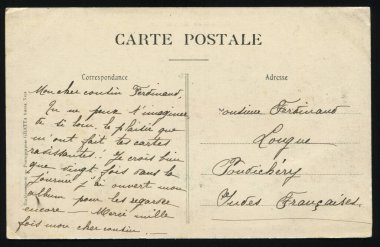 CARTE POSTALE
Correspondance
Mon cher cousin Ferdinand.
Tu ne peux t'imaginer
toi loin, le plaisir que
m'ont fait les cartes
Je crois bien
que vingt fois dans la
journée j'ai ouvert mon
album pour les regarder
encore — Merci mille
fois mon cher cousin
Adresse
Monsieur Ferdinand
Longue
Pondichéry
Indes Françaises.